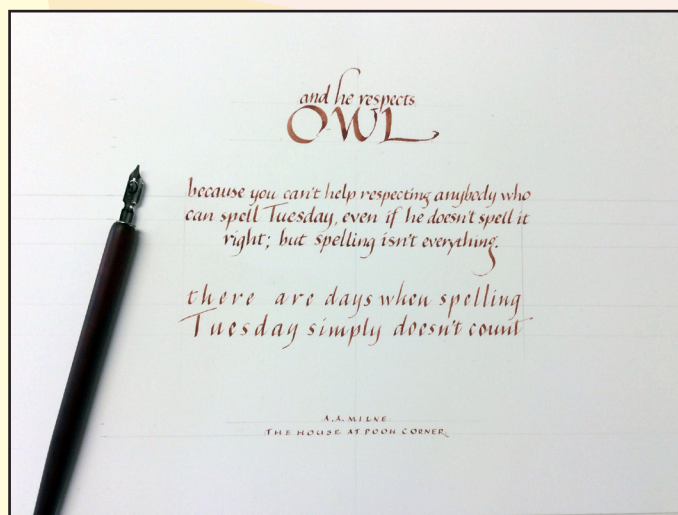 and he respects
OWL
because you can't help respecting anybody who
can spell Tuesday, even if he doesn't spell it
right; but spelling isn't everything.
there are days when spelling
Tuesday simply doesn't count
A.A. MILNE
THE HOUSE AT POOH CORNER